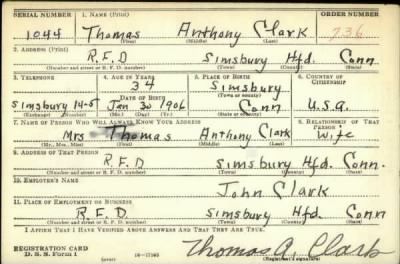 SERIAL NUMBER 1. NAME (Print) ORDER NUMBER
1044 Thomas Anthony Clark 736
(First) (Middle) (Last)
2. ADDRESS (Print)
R.F.D Simsbury Htfd. Conn
(Number and street or R. F. D. number) (Town) (County) (State)
3. TELEPHONE 4. AGE IN YEARS 5. PLACE OF BIRTH 6. COUNTRY OF CITIZENSHIP
34 Simsbury
(Town or county)
DATE OF BIRTH
Simsbury 14-5 Jan 30 1906 Conn U.S.A.
(Exchange) (Number) (Mo.) (Day) (Yr.) (State or country)
7. NAME OF PERSON WHO WILL ALWAYS KNOW YOUR ADDRESS 8. RELATIONSHIP OF THAT PERSON
Mrs Thomas Anthony Clark Wife
(Mr., Mrs., Miss) (First) (Middle) (Last)
9. ADDRESS OF THAT PERSON
R.F.D Simsbury Htfd. Conn.
(Number and street or R. F. D. number) (Town) (County) (State)
10. EMPLOYER'S NAME
John Clark
11. PLACE OF EMPLOYMENT OR BUSINESS
R.F.D. Simsbury Htfd. Conn
(Number and street or R. F. D. number) (Town) (County) (State)
I AFFIRM THAT I HAVE VERIFIED ABOVE ANSWERS AND THAT THEY ARE TRUE.
REGISTRATION CARD
D. S. S. Form 1 (over) 16-17105 Thomas A. Clark
(Registrant's signature)